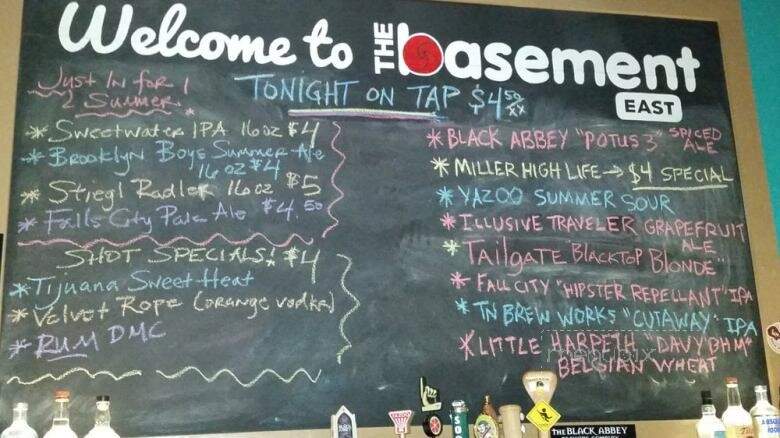 Welcome to THE basement
EAST
JUST IN FOR
SUMMER
TONIGHT ON TAP $4.50
* SWEETWATER IPA 16 OZ $4
* BROOKLYN BOYS SUMMER ALE
16 OZ $4
* STIEGL RADLER 16 OZ $5
* FALLS CITY PALE ALE $4.50
SHOT SPECIALS! $4
* TIJUANA SWEET HEAT
* VELVET ROPE (ORANGE VODKA)
* RUM DMC
* BLACK ABBEY "POTUS 3" SPICED
ALE
* MILLER HIGH LIFE → $4 SPECIAL
* YAZOO SUMMER SOUR
* ILLUSIVE TRAVELER GRAPEFRUIT
ALE
* TAILGATE BLACKTOP BLONDE"
* FALL CITY "HIPSTER REPELLANT" IPA
* TN BREW WORKS "CUTAWAY" IPA
* LITTLE HARPETH "DAVY BHM"
BELGIAN WHEAT
menupix
THE BLACK ABBEY